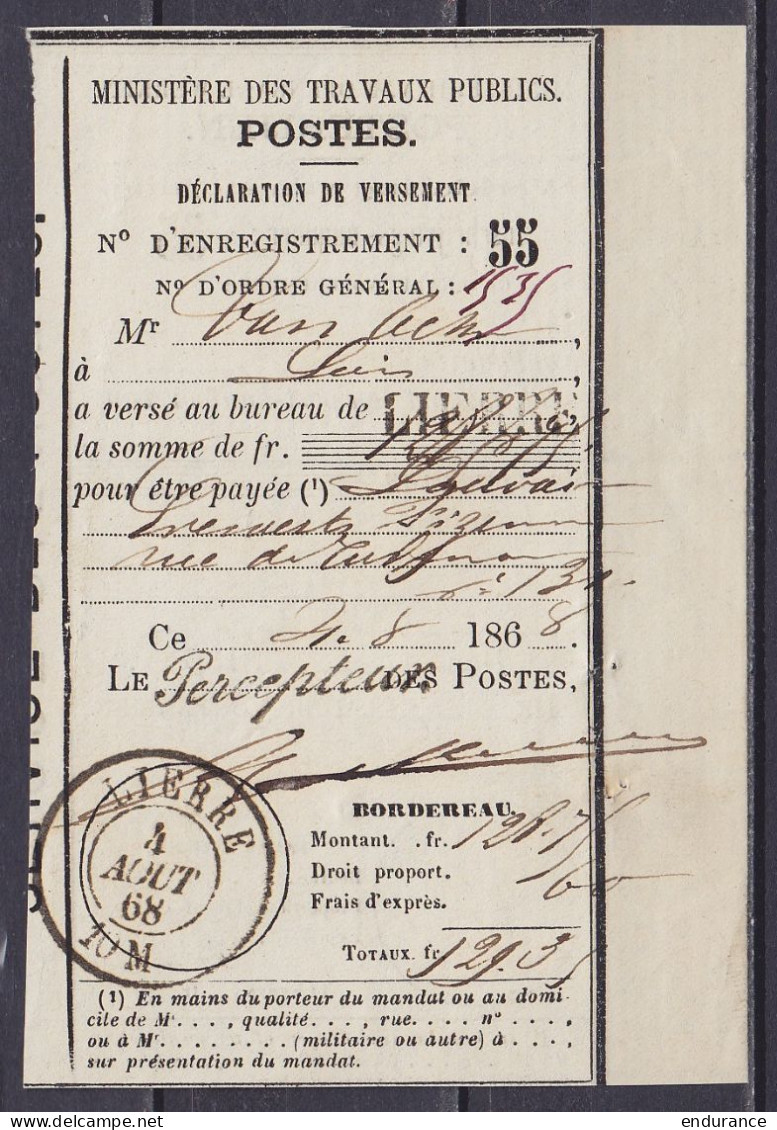 MINISTÈRE DES TRAVAUX PUBLICS.
POSTES.
DÉCLARATION DE VERSEMENT
Nº D'ENREGISTREMENT : 55
Nº D'ORDRE GÉNÉRAL : 1535
Mr Van
à
a versé au bureau de LIERRE
la somme de fr. 128.75
pour être payée (¹)
rue de
nº 13
Ce 4.8 1868.
LE Percepteur DES POSTES,
LIERRE
4
AOUT
68
10 M
BORDEREAU.
Montant. .fr. 128.75
Droit proport. 60
Frais d'exprès.
TOTAUX. fr. 129.35
(¹) En mains du porteur du mandat ou au domi-
cile de Mr. . . . , qualité. . . , rue. . . . nº . . . ,
ou à Mr. . . . . . . . (militaire ou autre) à . . . ,
sur présentation du mandat.
endurance